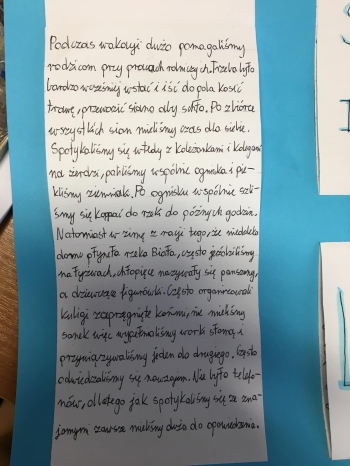 Podczas wakacji dużo pomagaliśmy
rodzicom przy pracach rolniczych. Trzeba było
bardzo wcześniej wstać i iść do pola kosić
trawę, przewozić siano aby schło. Po zbiórce
wszystkich sian mieliśmy czas dla siebie.
Spotykaliśmy się wtedy z koleżankami i kolegami
na żerdzi, paliliśmy wspólnie ogniska i pie-
kliśmy ziemniaki. Po ognisku wspólnie szli-
śmy się kąpać do rzeki do późnych godzin.
Natomiast w zimę z racji tego, że niedaleko
domu płynęła rzeka Biała, często jeździliśmy
na łyżwach, chłopięce nazywały się panczeny,
a dziewczęce figurówki. Często organizowali
kuligi zaprzęgnięte końmi, nie mieliśmy
sanek więc wypełnialiśmy worki słomą i
przywiązywaliśmy jeden do drugiego. Często
odwiedzaliśmy się nawzajem. Nie było telefo-
nów, dlatego jak spotykaliśmy się ze zna-
jomymi zawsze mieliśmy dużo do opowiedzenia.